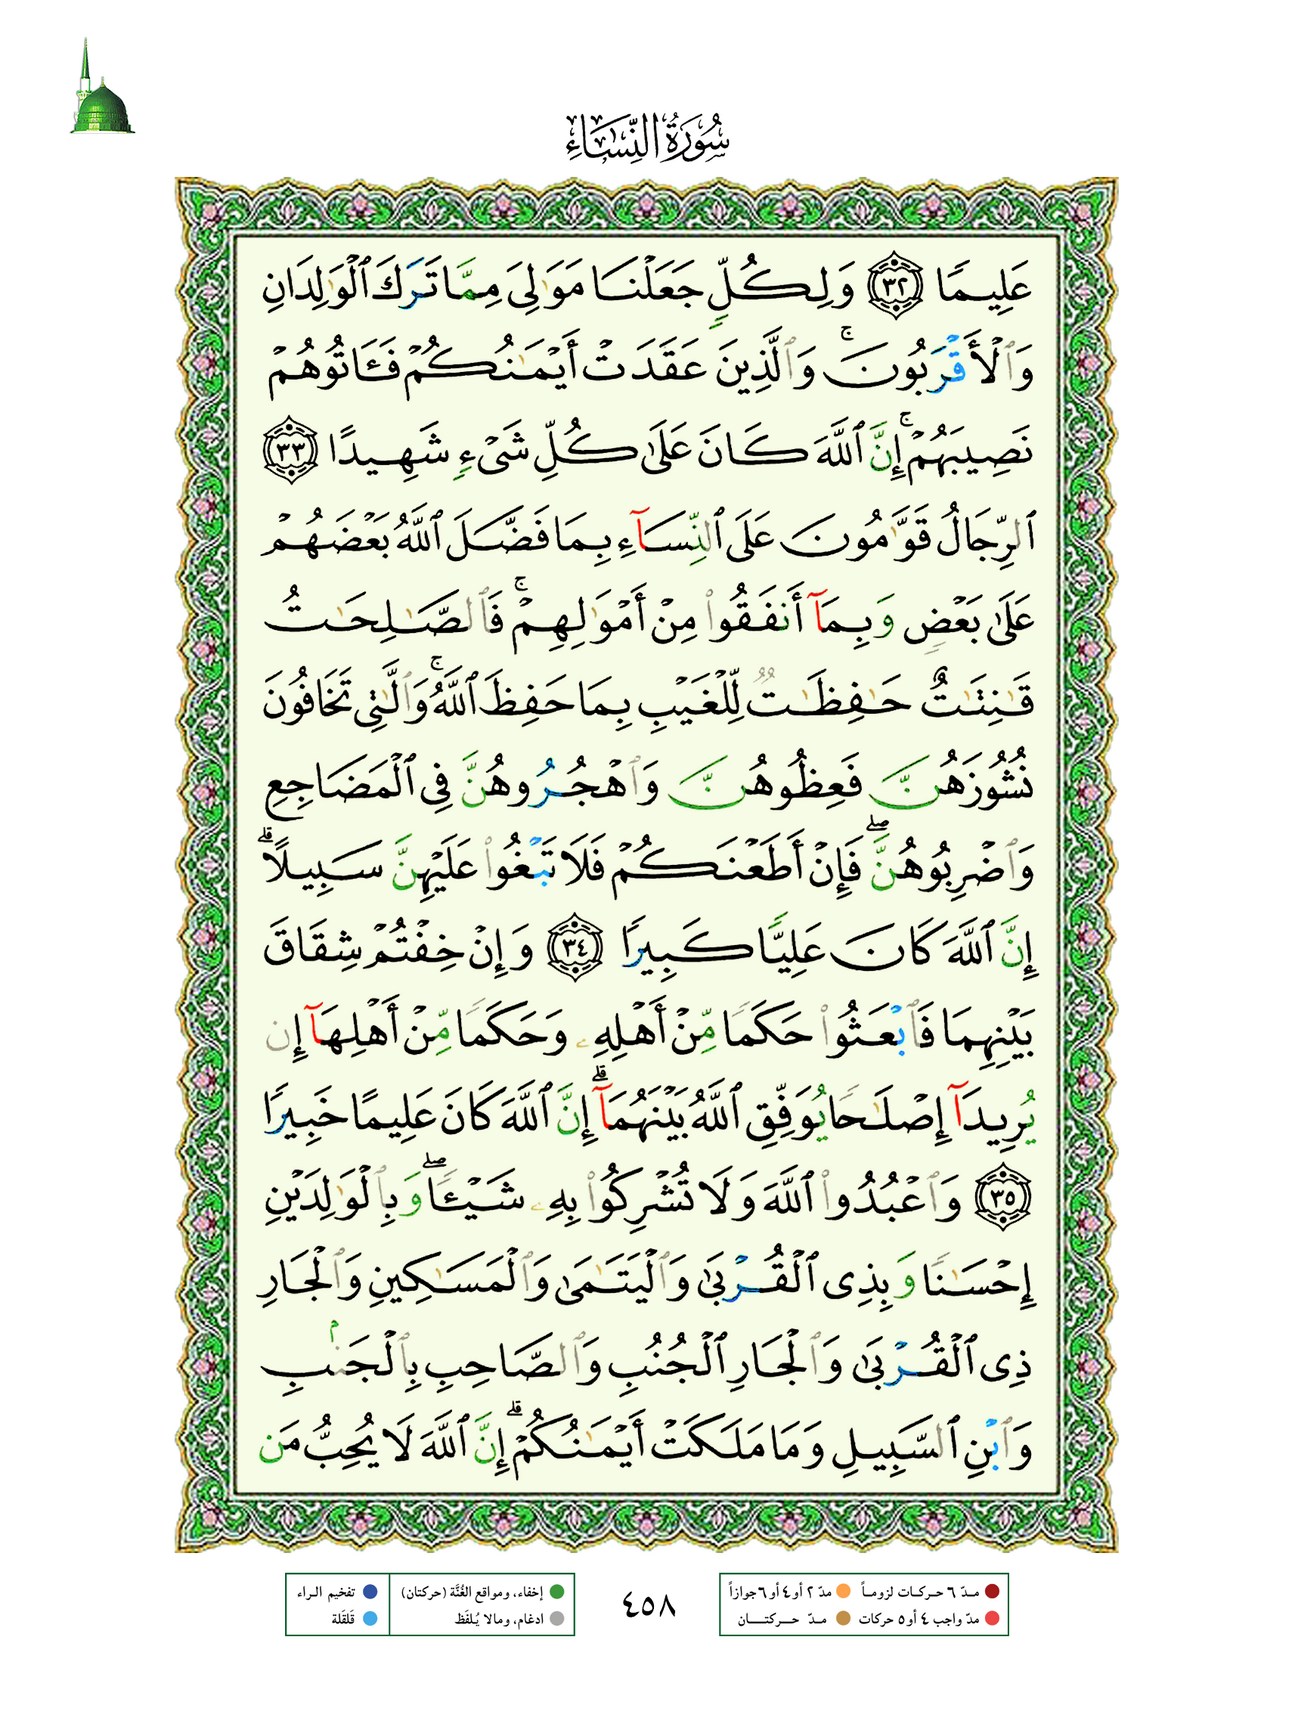 سُورَةُ النِّسَاءِ
عَلِيمًا ٣٢ وَلِكُلٍّ جَعَلْنَا مَوَٰلِىَ مِمَّا تَرَكَ ٱلْوَٰلِدَانِ
وَٱلْأَقْرَبُونَ ۚ وَٱلَّذِينَ عَقَدَتْ أَيْمَٰنُكُمْ فَـَٔاتُوهُمْ
نَصِيبَهُمْ ۚ إِنَّ ٱللَّهَ كَانَ عَلَىٰ كُلِّ شَىْءٍ شَهِيدًا ٣٣
ٱلرِّجَالُ قَوَّٰمُونَ عَلَى ٱلنِّسَآءِ بِمَا فَضَّلَ ٱللَّهُ بَعْضَهُمْ
عَلَىٰ بَعْضٍ وَبِمَآ أَنفَقُوا۟ مِنْ أَمْوَٰلِهِمْ ۚ فَٱلصَّٰلِحَٰتُ
قَٰنِتَٰتٌ حَٰفِظَٰتٌ لِّلْغَيْبِ بِمَا حَفِظَ ٱللَّهُ ۚ وَٱلَّٰتِى تَخَافُونَ
نُشُوزَهُنَّ فَعِظُوهُنَّ وَٱهْجُرُوهُنَّ فِى ٱلْمَضَاجِعِ
وَٱضْرِبُوهُنَّ ۖ فَإِنْ أَطَعْنَكُمْ فَلَا تَبْغُوا۟ عَلَيْهِنَّ سَبِيلًا ۗ
إِنَّ ٱللَّهَ كَانَ عَلِيًّا كَبِيرًا ٣٤ وَإِنْ خِفْتُمْ شِقَاقَ
بَيْنِهِمَا فَٱبْعَثُوا۟ حَكَمًا مِّنْ أَهْلِهِۦ وَحَكَمًا مِّنْ أَهْلِهَآ إِن
يُرِيدَآ إِصْلَٰحًا يُوَفِّقِ ٱللَّهُ بَيْنَهُمَآ ۗ إِنَّ ٱللَّهَ كَانَ عَلِيمًا خَبِيرًا
٣٥ وَٱعْبُدُوا۟ ٱللَّهَ وَلَا تُشْرِكُوا۟ بِهِۦ شَيْـًٔا ۖ وَبِٱلْوَٰلِدَيْنِ
إِحْسَٰنًا وَبِذِى ٱلْقُرْبَىٰ وَٱلْيَتَٰمَىٰ وَٱلْمَسَٰكِينِ وَٱلْجَارِ
ذِى ٱلْقُرْبَىٰ وَٱلْجَارِ ٱلْجُنُبِ وَٱلصَّاحِبِ بِٱلْجَنۢبِ
وَٱبْنِ ٱلسَّبِيلِ وَمَا مَلَكَتْ أَيْمَٰنُكُمْ ۗ إِنَّ ٱللَّهَ لَا يُحِبُّ مَن
مدّ ٦ حركات لزوماً مدّ ٢ أو٤ أو٦ جوازاً
مدّ واجب ٤ أو٥ حركات مدّ حركتان
٤٥٨
إخفاء، ومواقع الغُنَّة (حركتان) تفخيم الراء
ادغام، ومالا يُلفَظ قَلقَلة